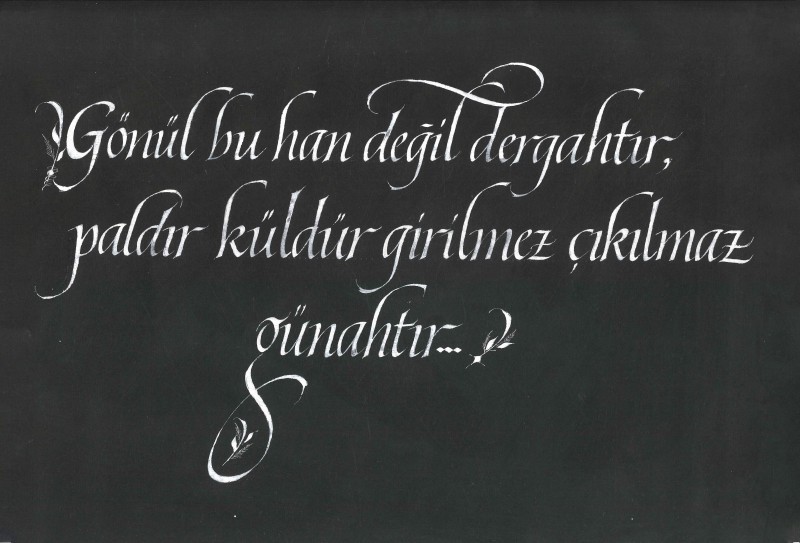 Gönül bu han değil dergahtır,
paldır küldür girilmez çıkılmaz
günahtır...